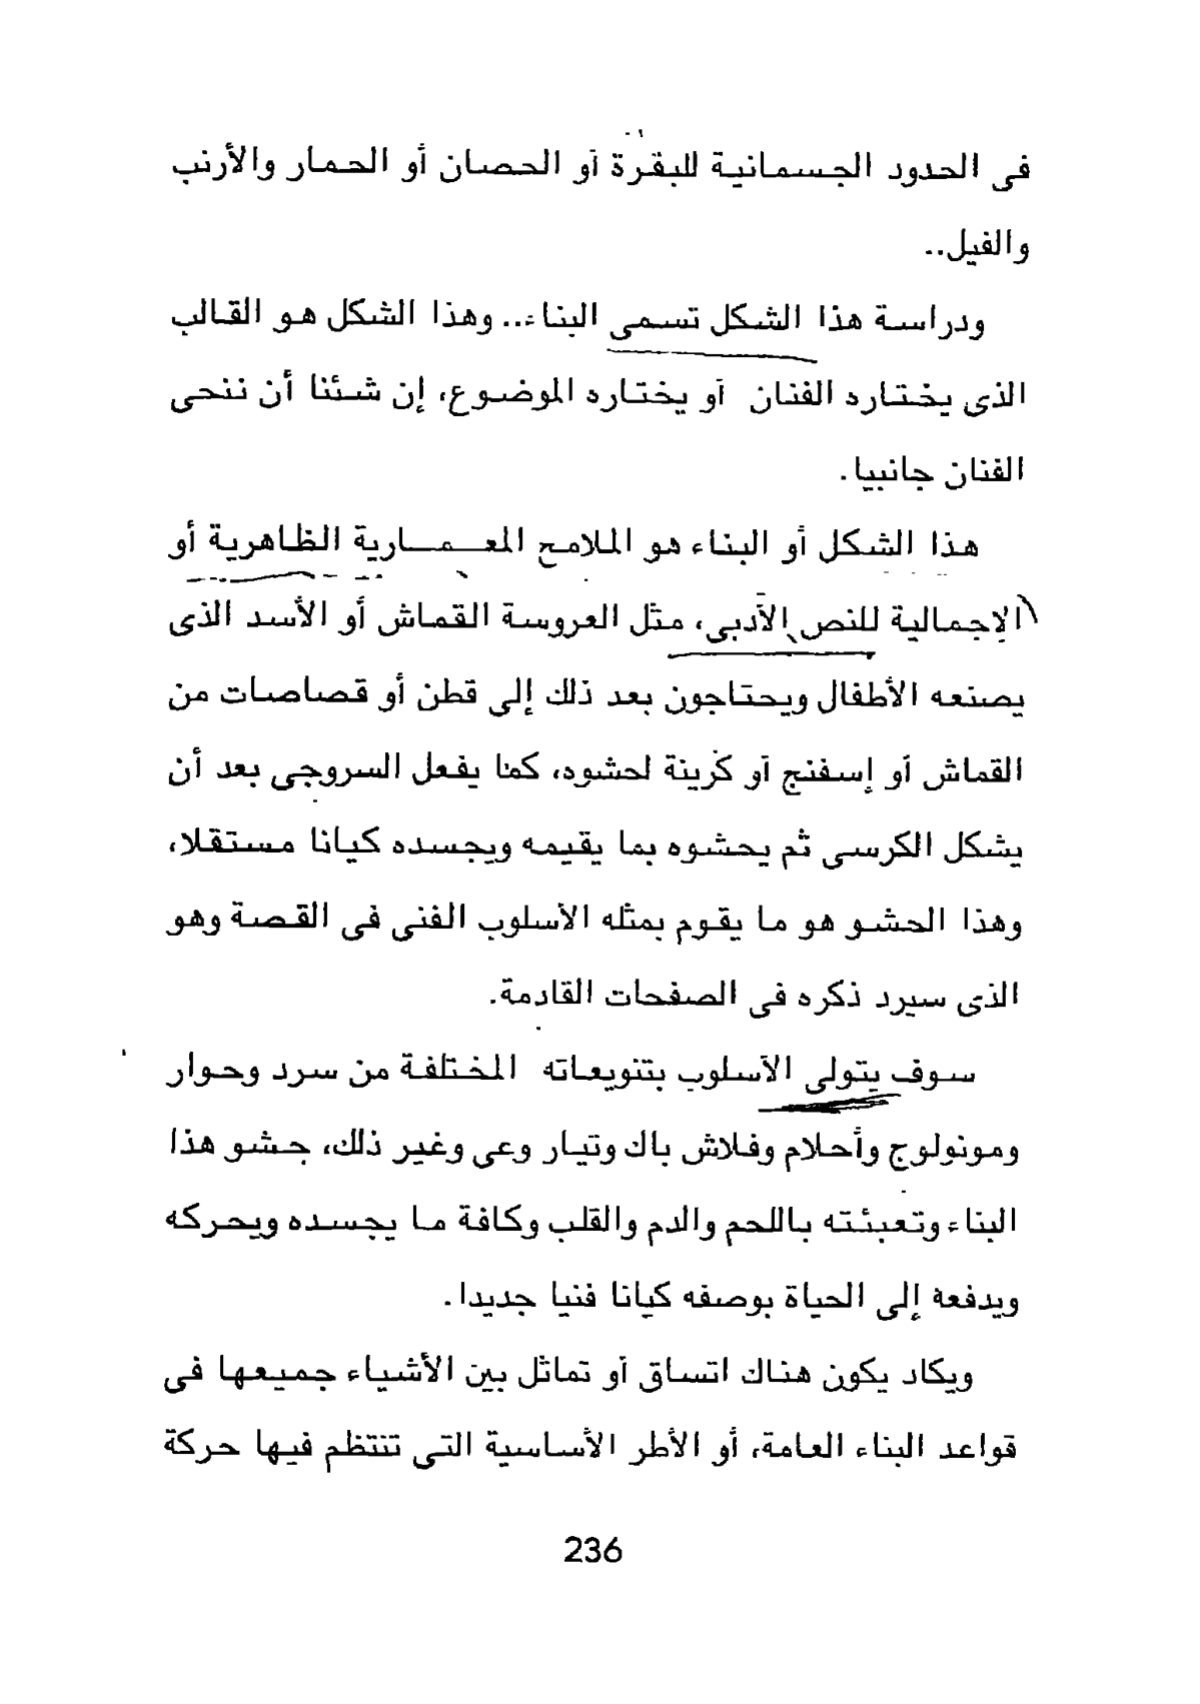 فى الحدود الجسمانية للبقرة أو الحصان أو الحمار والأرنب
والفيل..
ودراسة هذا الشكل تسمى البناء.. وهذا الشكل هو القالب
الذى يختاره الفنان أو يختاره الموضوع، إن شئنا أن ننحى
الفنان جانبيا.
هذا الشكل أو البناء هو الملامح المعمارية الظاهرية أو
الإجمالية للنص الأدبى، مثل العروسة القماش أو الأسد الذى
يصنعه الأطفال ويحتاجون بعد ذلك إلى قطن أو قصاصات من
القماش أو إسفنج أو كرينة لحشوه، كما يفعل السروجى بعد أن
يشكل الكرسى ثم يحشوه بما يقيمه ويجسده كيانا مستقلا،
وهذا الحشو هو ما يقوم بمثله الأسلوب الفنى فى القصة وهو
الذى سيرد ذكره فى الصفحات القادمة.
سوف يتولى الأسلوب بتنويعاته المختلفة من سرد وحوار
ومونولوج وأحلام وفلاش باك وتيار وعى وغير ذلك، حشو هذا
البناء وتعبئته باللحم والدم والقلب وكافة ما يجسده ويحركه
ويدفعه إلى الحياة بوصفه كيانا فنيا جديدا.
ويكاد يكون هناك اتساق أو تماثل بين الأشياء جميعها فى
قواعد البناء العامة، أو الأطر الأساسية التى تنتظم فيها حركة
236